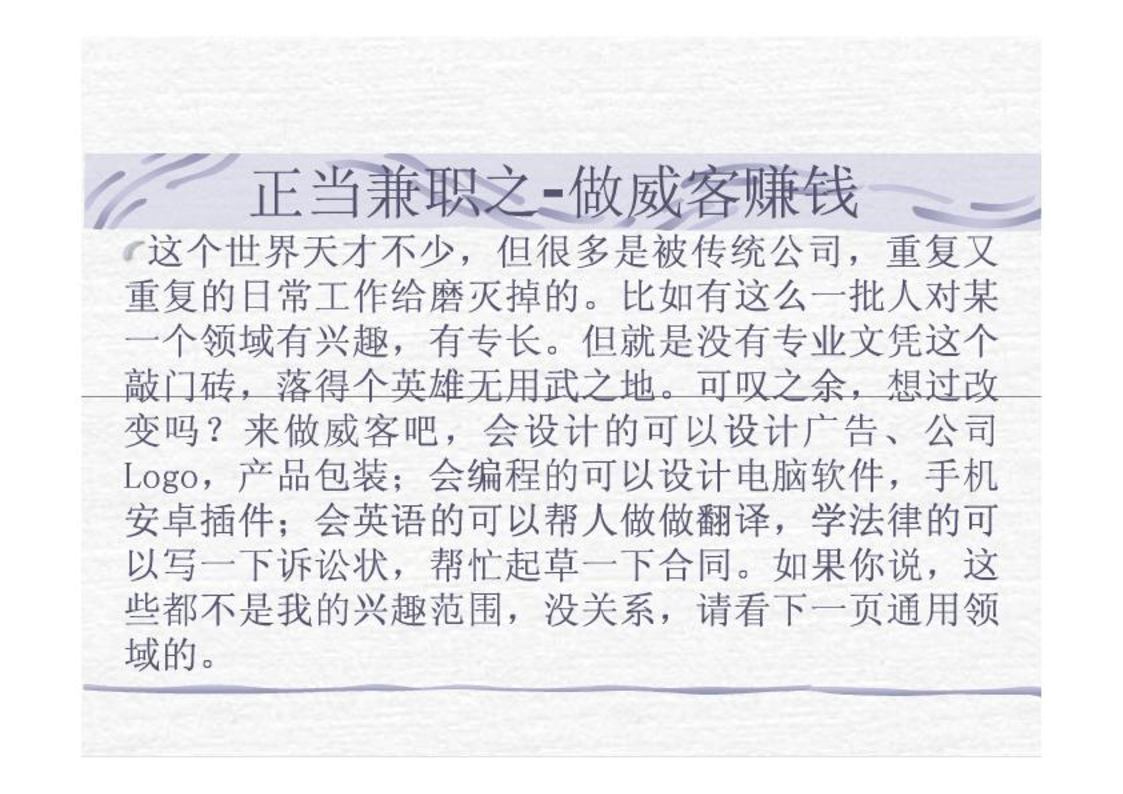 正当兼职之-做威客赚钱
这个世界天才不少，但很多是被传统公司，重复又
重复的日常工作给磨灭掉的。比如有这么一批人对某
一个领域有兴趣，有专长。但就是没有专业文凭这个
敲门砖，落得个英雄无用武之地。可叹之余，想过改
变吗？来做威客吧，会设计的可以设计广告、公司
Logo，产品包装；会编程的可以设计电脑软件，手机
安卓插件；会英语的可以帮人做做翻译，学法律的可
以写一下诉讼状，帮忙起草一下合同。如果你说，这
些都不是我的兴趣范围，没关系，请看下一页通用领
域的。